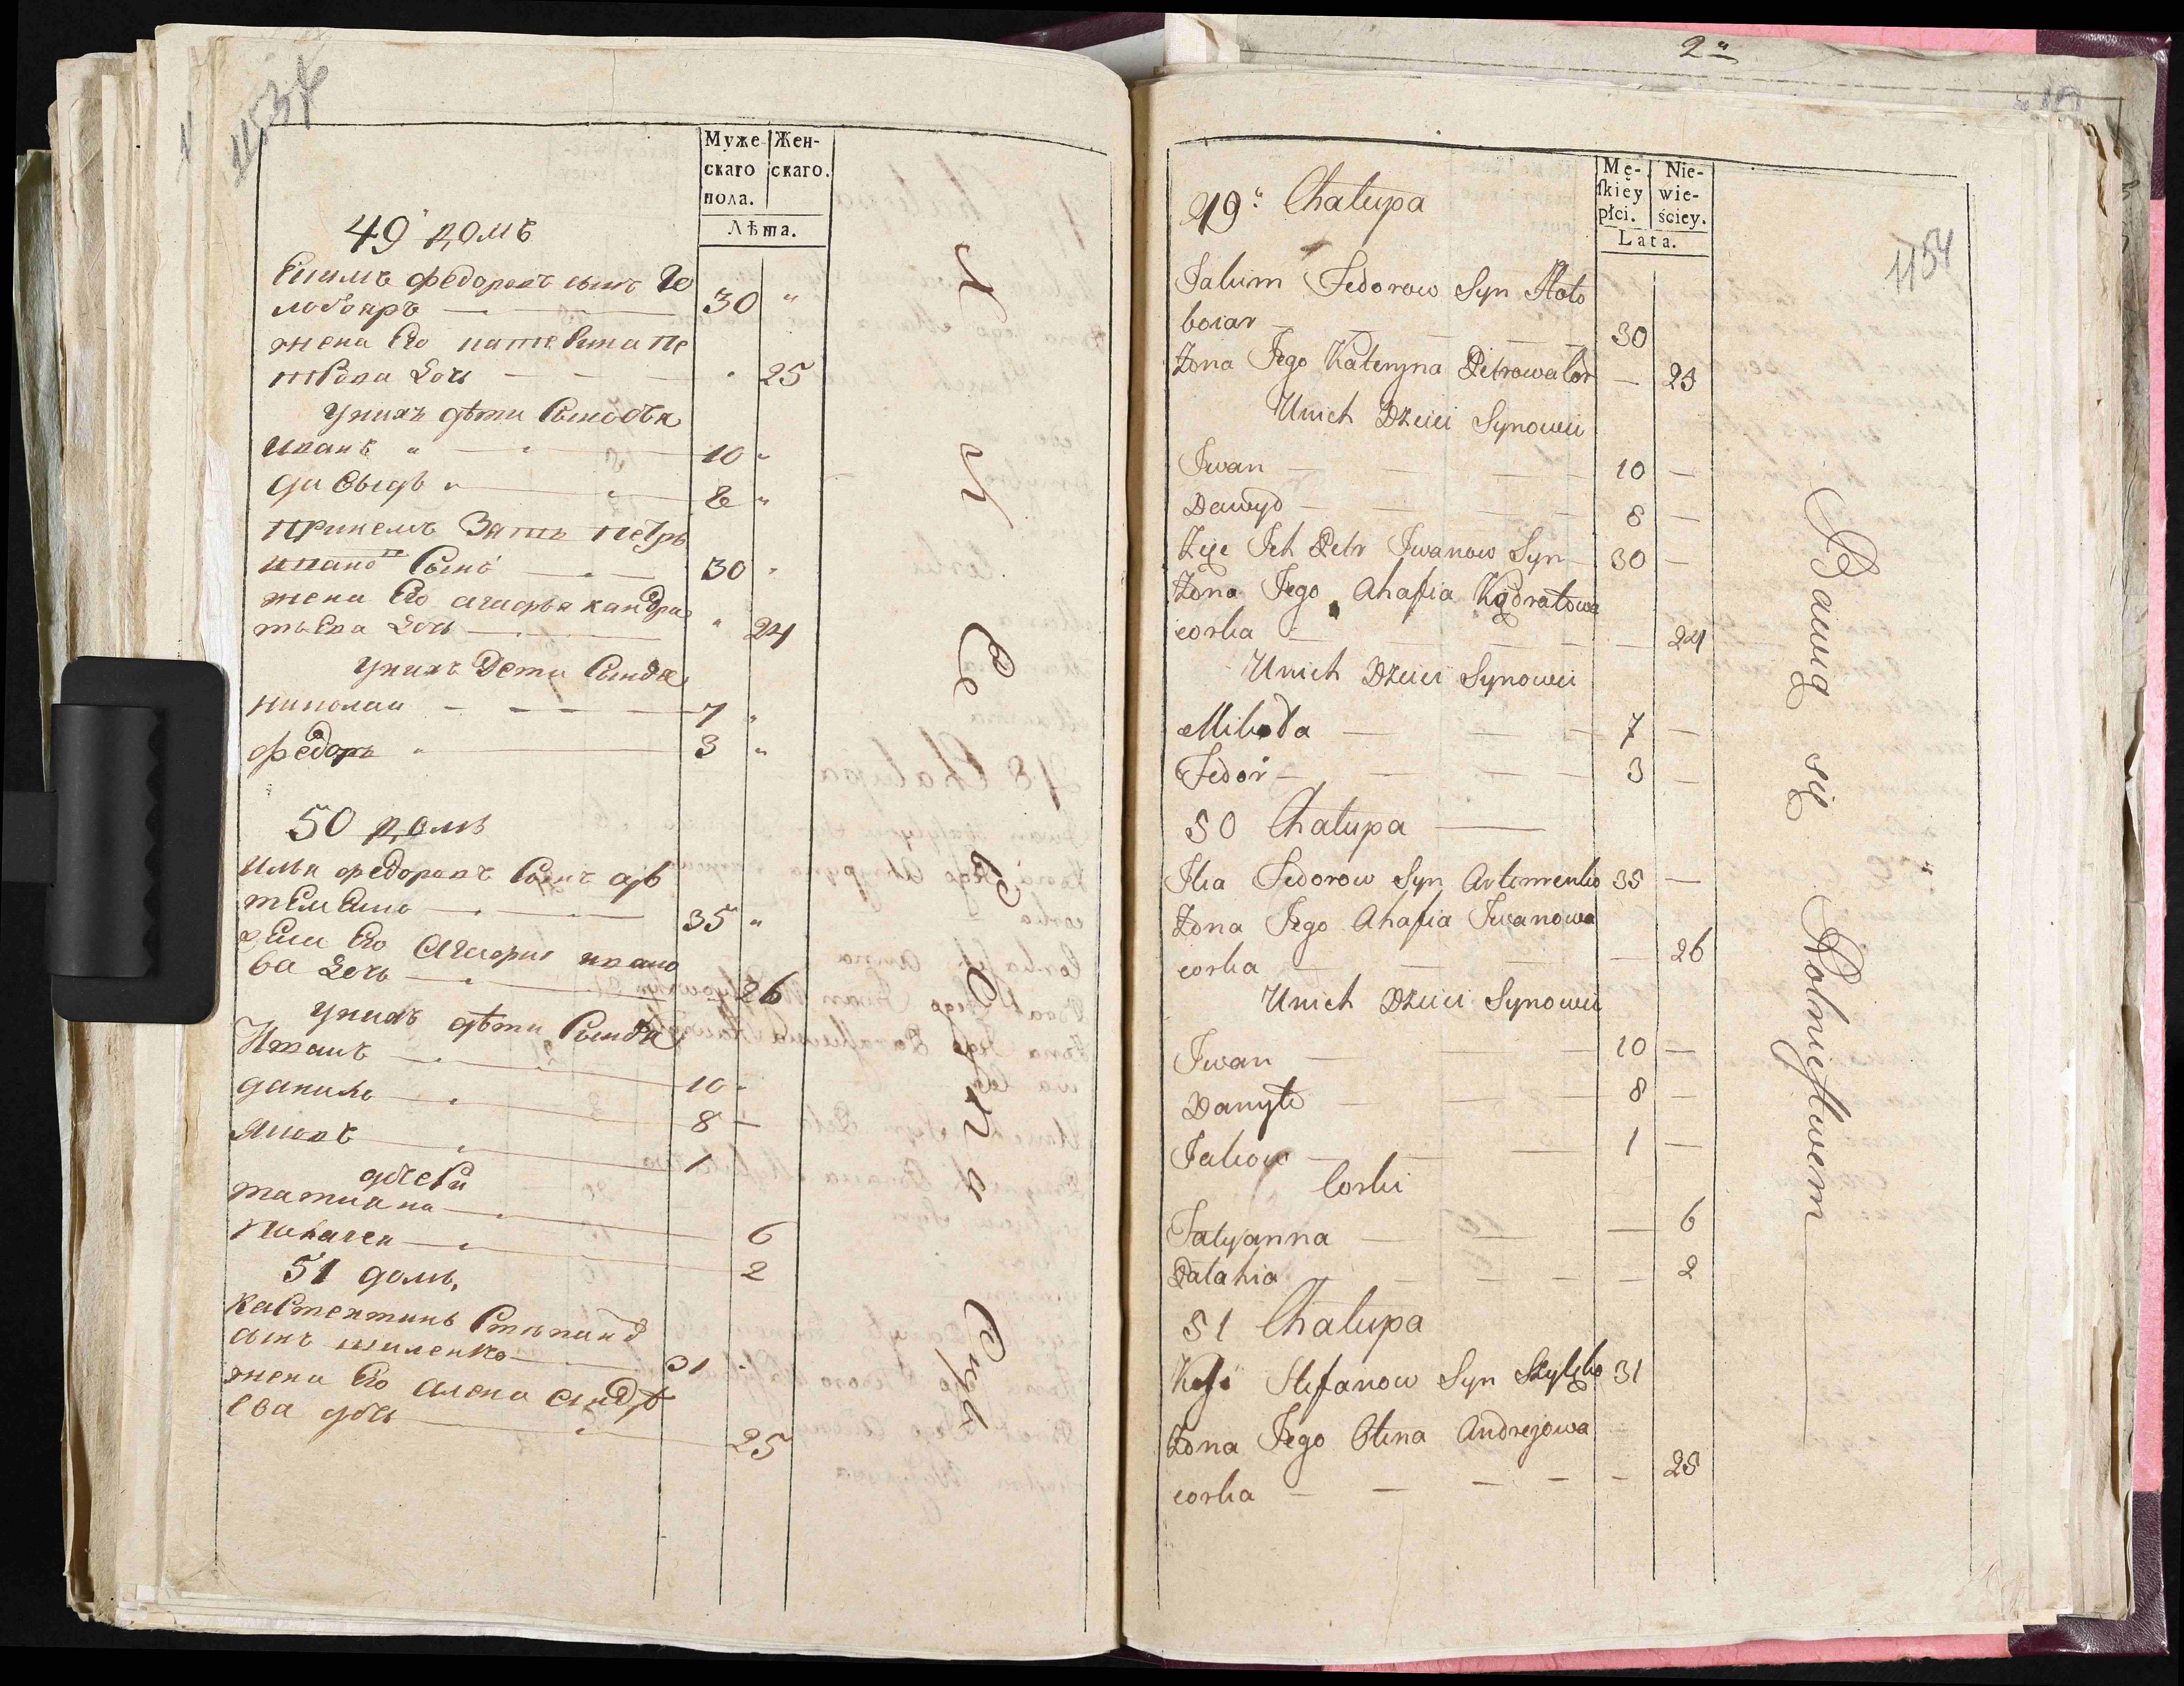 1154
Муже-
скаго
пола.
Жен-
скаго.
Лѣта.
49 домъ
Екимъ федоровъ сынъ Го
лобояръ 30 "
жена Его катерина Пе
трова дочь 25
У нихъ дѣти Сыновья
Иванъ " 10 "
давыдъ " 8 "
Приемъ Зять петръ
ивановъ Сынъ 30 "
жена Его агафья кандра
тьева дочь " 24
У нихъ Дети Сыновя
николаи 7 "
федоръ " 3 "
50 домъ
илья федоровъ Сынъ ар
тЕмЕнко 35 "
жена Его Агафия ивано
ва дочь 26
У нихъ дѣти Сыновя
Иванъ 10 "
данило 8
Яковъ 1
дочери
татиана 6
Палагея 2
51 домъ
Кастентинъ Степанов
сынъ шиленко 31
жена Его алена андре
ева дочь 25
2"
Mę-
ſkiéy
płci.
Nie-
wie-
ściey.
Lata.
1154
49" Chalupa
Jakim Fedorow Syn Hoło
boiar 30
Żona Jego Kateryna Petrowa cor 25
Unich Dzieci Synowii
Jwan 10
Dawyd 8
Zięc Ich Petr Jwanow Syn 30
Żona Jego Ahafia Kądratowa
corka 24
Unich Dzieci Synowii
Mikoła 7
Fedor 3
50 Chalupa
Ilia Fedorow Syn Artemenko 35
Żona Jego Ahafia Jwanowa
corka 26
Unich Dzieci Synowii
Jwan 10
Danyło 8
Jakow 1
Corki
Tatyanna 6
Palahia 2
51 Chalupa
Stefanow Syn Szylęko 31
Żona Jego Olena Andrejowa
corka 25
Bawią się Rolnictwem